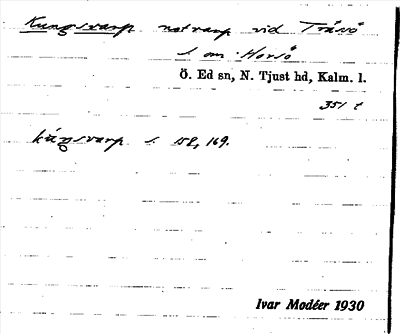 Kungsvarp notvarp vid Tråvö
s. om Horsö
Ö. Ed sn, N. Tjust hd, Kalm. l.
351 t
kúŋsvarp s. 158, 169.
Ivar Modéer 1930